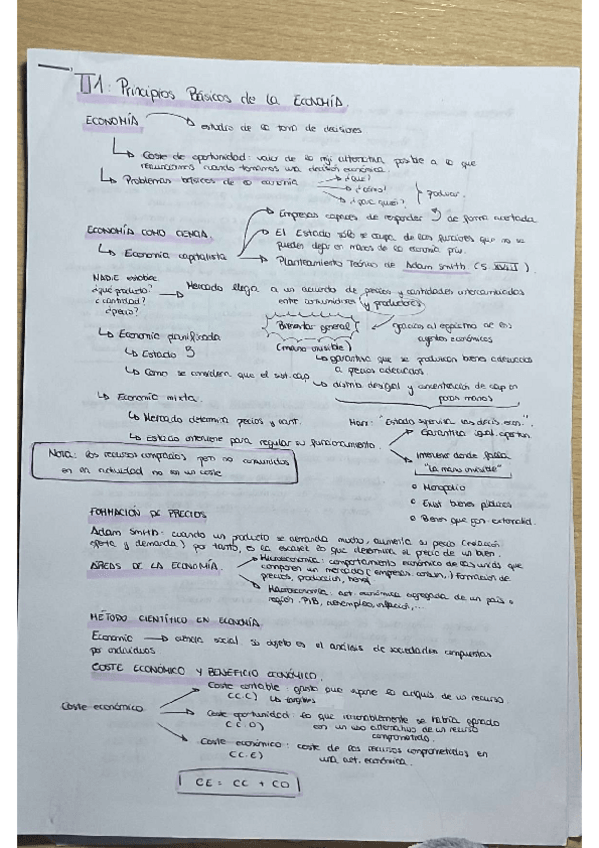 T1: Principios Básicos de la ECONOMÍA.
ECONOMÍA → estudio de la toma de decisiones
↳ Coste de oportunidad: valor de la mejor alternativa posible a la que
renunciamos cuando tomamos una decisión económica
↳ Problemas básicos de la economía → ¿qué?
→ ¿cómo?
→ ¿para quién?
producir.
Empresas capaces de responder de forma acertada
ECONOMÍA COMO CIENCIA.
El Estado sólo se ocupa de las funciones que no se
pueden dejar en manos de la economía priv.
↳ Economía capitalista
Planteamiento Teórico de Adam Smith (S. XVIII).
NADIE establece
¿qué producto?
¿cantidad?
¿precio?
→ Mercado llega a un acuerdo de precios y cantidades intercambiados
entre consumidores y productores
Bienestar general
(mano invisible)
gracias al egoísmo de los
agentes económicos
↳ Economía planificada
↳ garantiza que se produzcan bienes adecuados
a precios adecuados
↳ Estado
↳ Como se considera que el sist. cap
↳ distrib desigual y concentración de cap en
pocas manos
↳ Economía mixta
↳ Mercado determina precios y cant.
↳ Estado interviene para regular su funcionamiento.
Garantiza igual. oportun.
Interviene donde falla
"la mano invisible"
Monopolio
Exist bienes públicos
Bienes que gen. externalid.
Nota: los recursos comprados pero no consumidos
en la actividad no son un coste
FORMACIÓN DE PRECIOS
Adam Smith: cuando un producto se demanda mucho, aumenta su precio (relación
oferta y demanda) por tanto, es la escasez lo que determina el precio de un bien.
ÁREAS DE LA ECONOMÍA.
Microeconomía: comportamiento económico de las unids que
componen un mercado (empresas, consum.) formación de
precios, producción, renta
Macroeconomía: act. económica agregada de un país o
región. PIB, desempleo, inflación,...
MÉTODO CIENTÍFICO EN ECONOMÍA
Economía → ciencia social su objeto es el análisis de sociedades compuestas
por individuos
COSTE ECONÓMICO Y BENEFICIO ECONÓMICO.
Coste económico
Coste contable: gasto que supone la adquis de un recurso
(C.C) ↳ tangibles
Coste oportunidad: lo que razonablemente se habría ganado
(C.O) en un uso alternativo de un recurso
comprometido.
Coste económico: coste de los recursos comprometidos en
(C.E) una act. económica.
CE = CC + CO